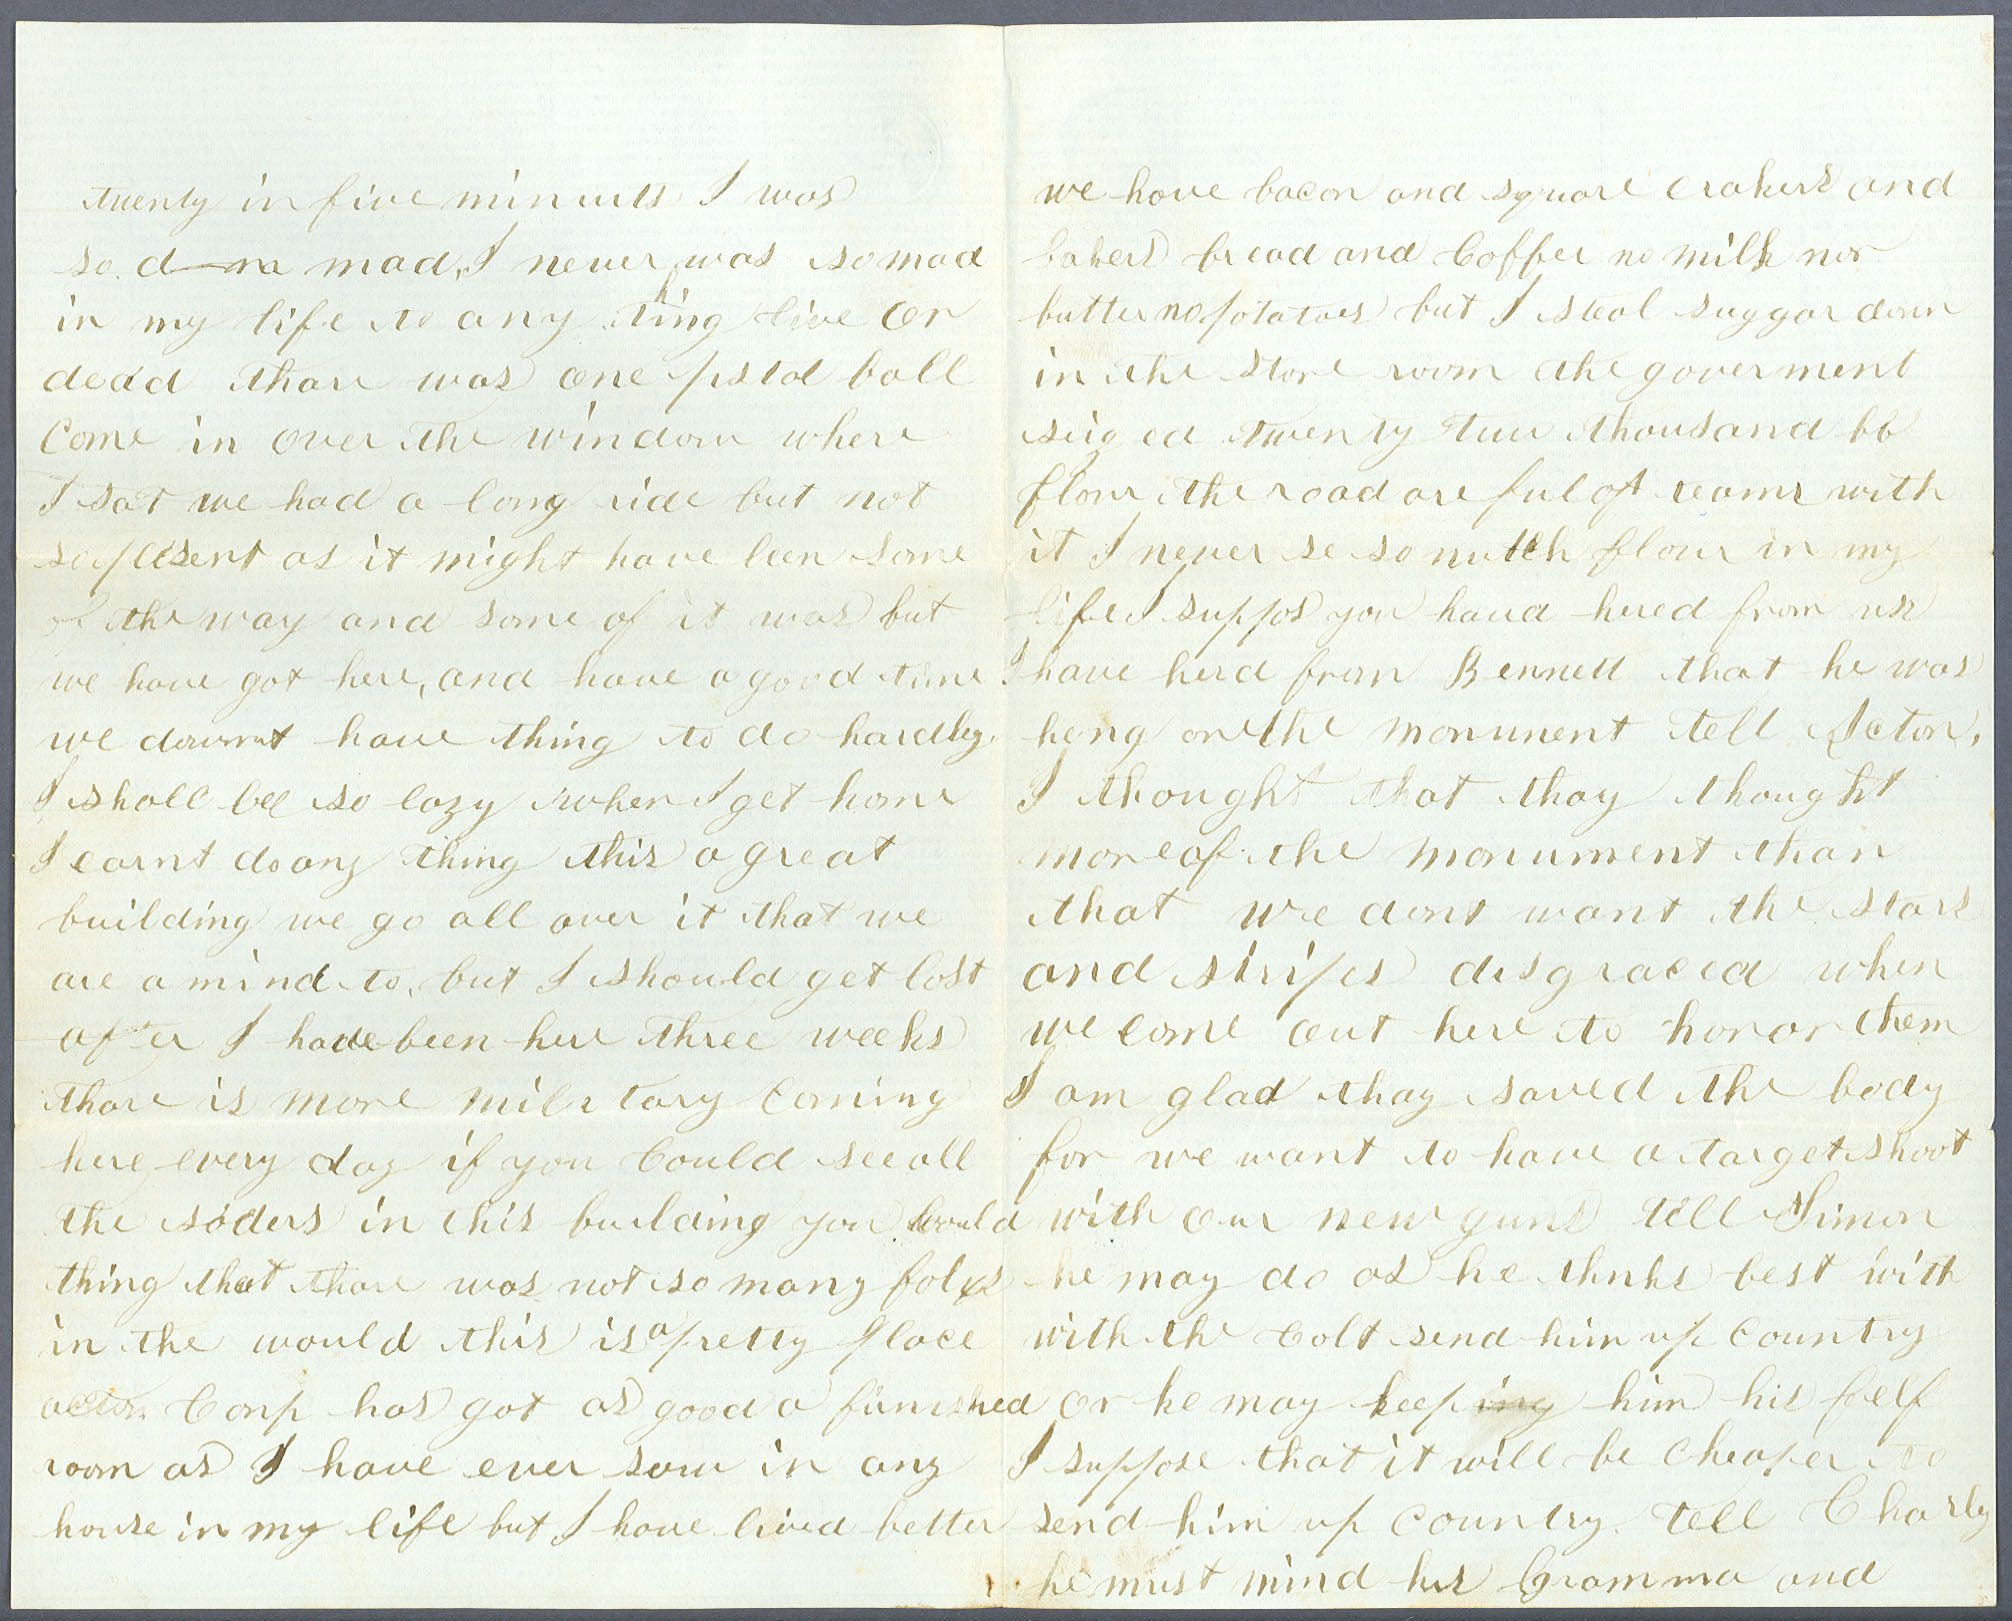 twenty in five minuts I was
so d—na mad, I never was so mad
in my life to any thing live or
dead thare was one pistol ball
Come in over the window where
I sat we had a long ride but not
so plesent as it might have been some
of the way and some of it was but
we have got here, and have a good time
we dount have thing to do hardley.
I shall bee so lazy when I get home
I carnt do any thing this a great
building we go all over it that we
are a mind to, but I should get lost
after I have been here three weeks
thare is more military Coming
here every day if you Could see all
the soders in this building you would
thing that thare was not so many folks
in the would this is a pretty place
acton Comp has got as good a furnished
room as I have ever saw in any
house in my life but I have lived better
we have bacon and square crakers and
bakers bread and Coffee no milk nor
butter no potatoes but I steal suggar down
in the store room the goverment
seiged twenty tuu thousand bb
flour the road are ful oft teams with
it I never se so mutch flour in my
life I suppos you haved hered from us
I have herd from Bennett that he was
hong on the monument tell Acton,
I thought that thay thought
more of the monument than
that we dont want the stars
and stripes disgraced when
we come out here to honor them
I am glad thay saved the body
for we want to have a target shoot
with our new guns tell Simon
he may do as he thnks best with
with the Colt send him up Country
or he may keep him his self
I suppose that it will be Cheaper to
send him up Country. tell Charley
he must mind his Gramma and